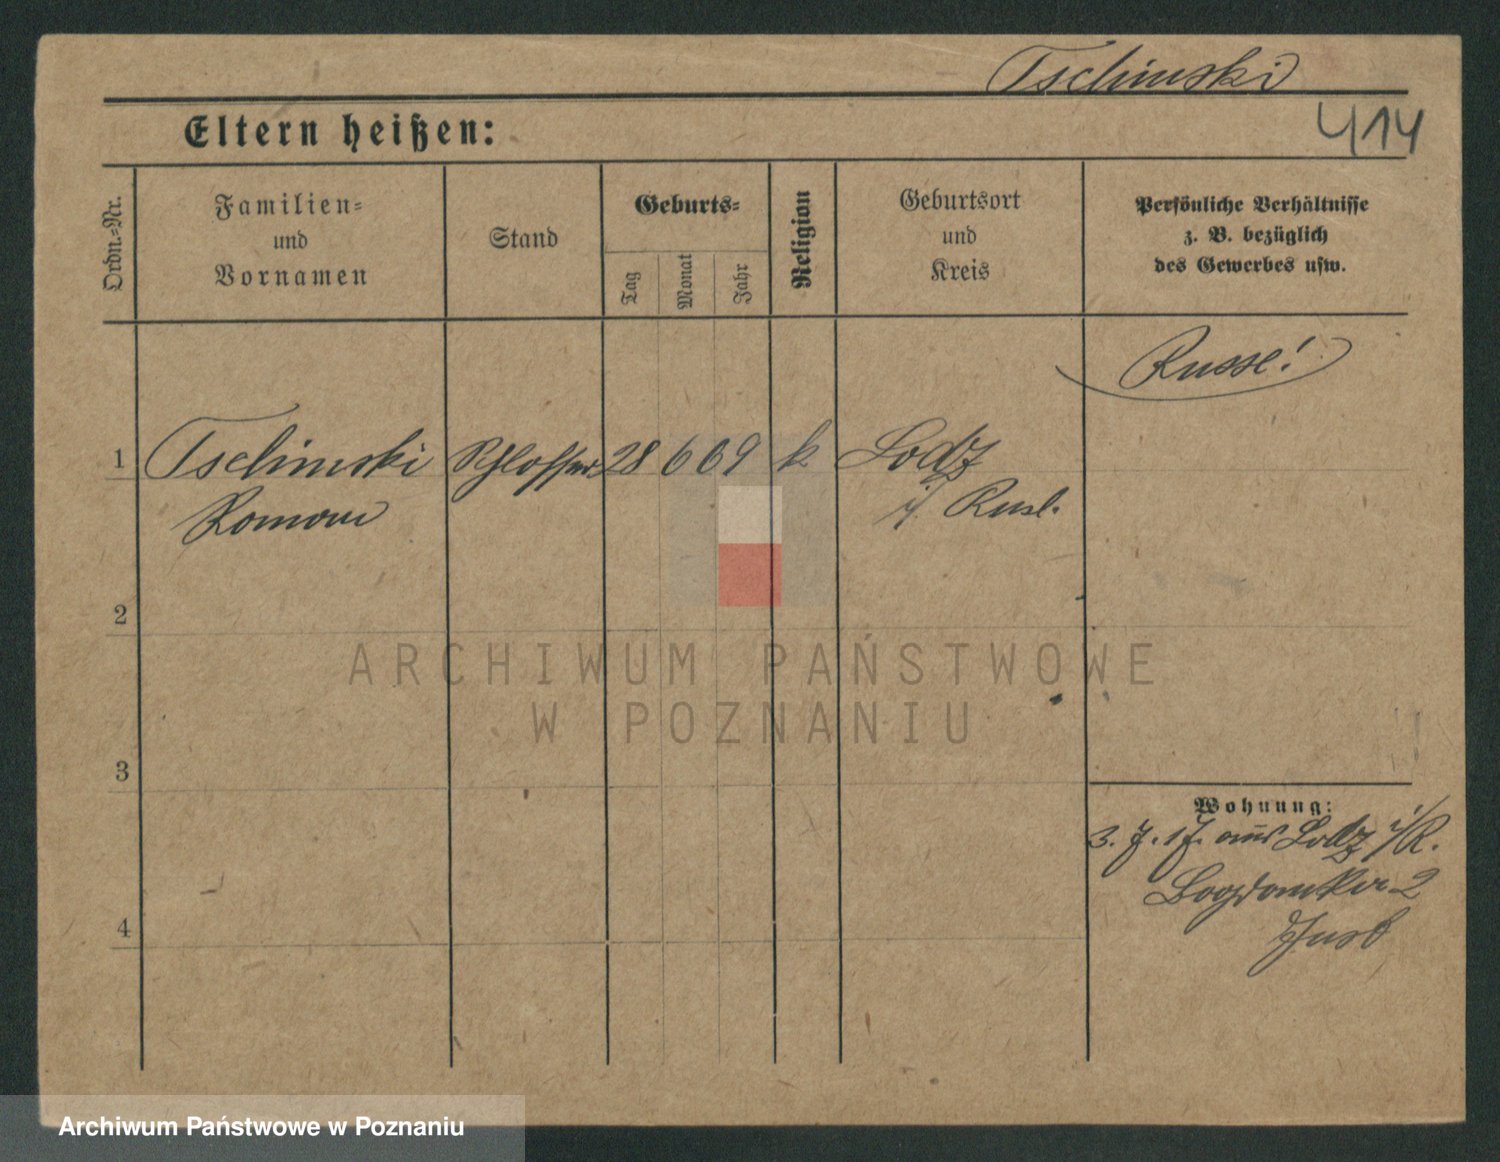 Tschinski
414
Eltern heißen:
Ordn.-Nr.
Familien-
und
Vornamen
Stand
Geburts-
Tag
Monat
Jahr
Religion
Geburtsort
und
Kreis
Persönliche Verhältnisse
z. B. bezüglich
des Gewerbes usw.
Russe!
1 Tschinski Schlosser 28 6 69 k Lodz
Roman i/ Rusl.
2
3
4
Wohnung:
3. 7. 17. aus Lodz i/R.
2
ARCHIWUM PAŃSTWOWE
W POZNANIU
Archiwum Państwowe w Poznaniu